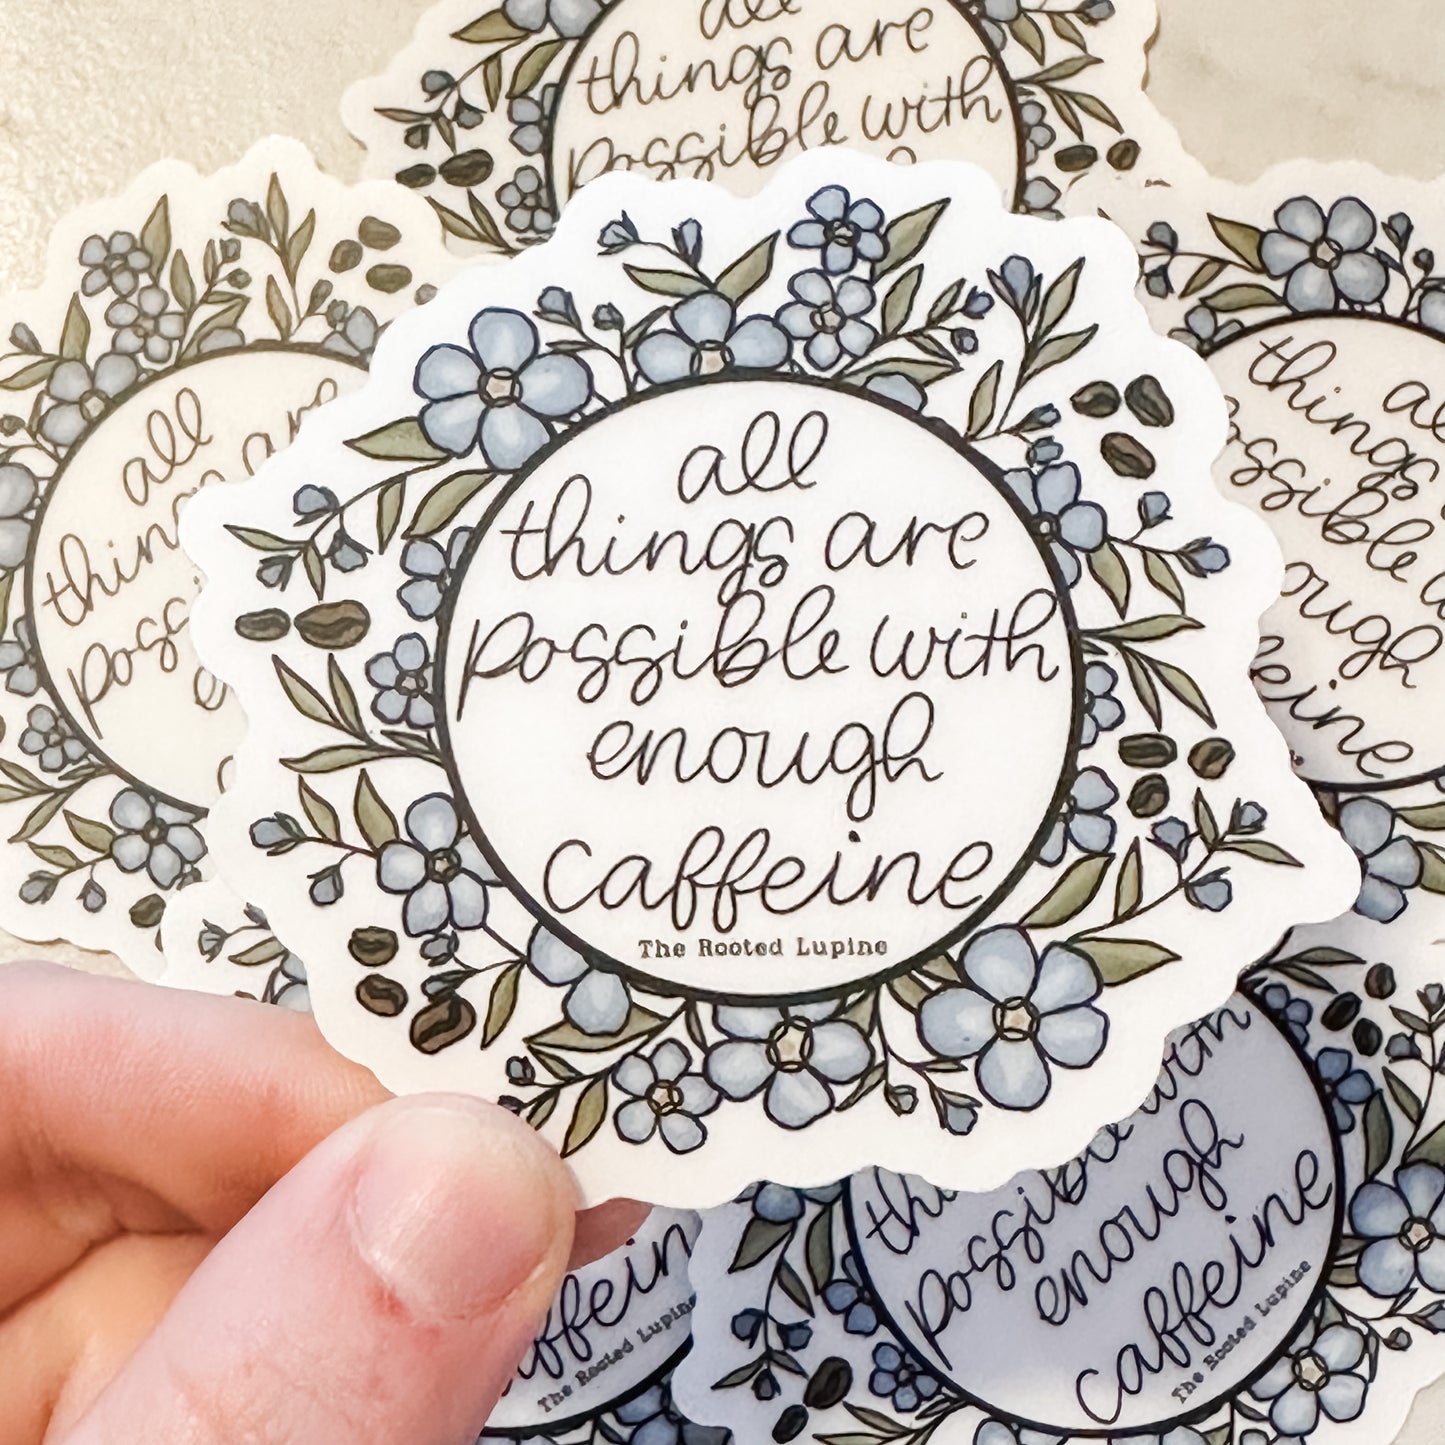 all
things are
possible with
all
things are
possible
all
things are
possible with
enough
caffeine
The Rooted Lupine
things
possible
enough
caffeine
possible with
enough
caffeine
The Rooted Lupine
caffeine
The Rooted Lupine